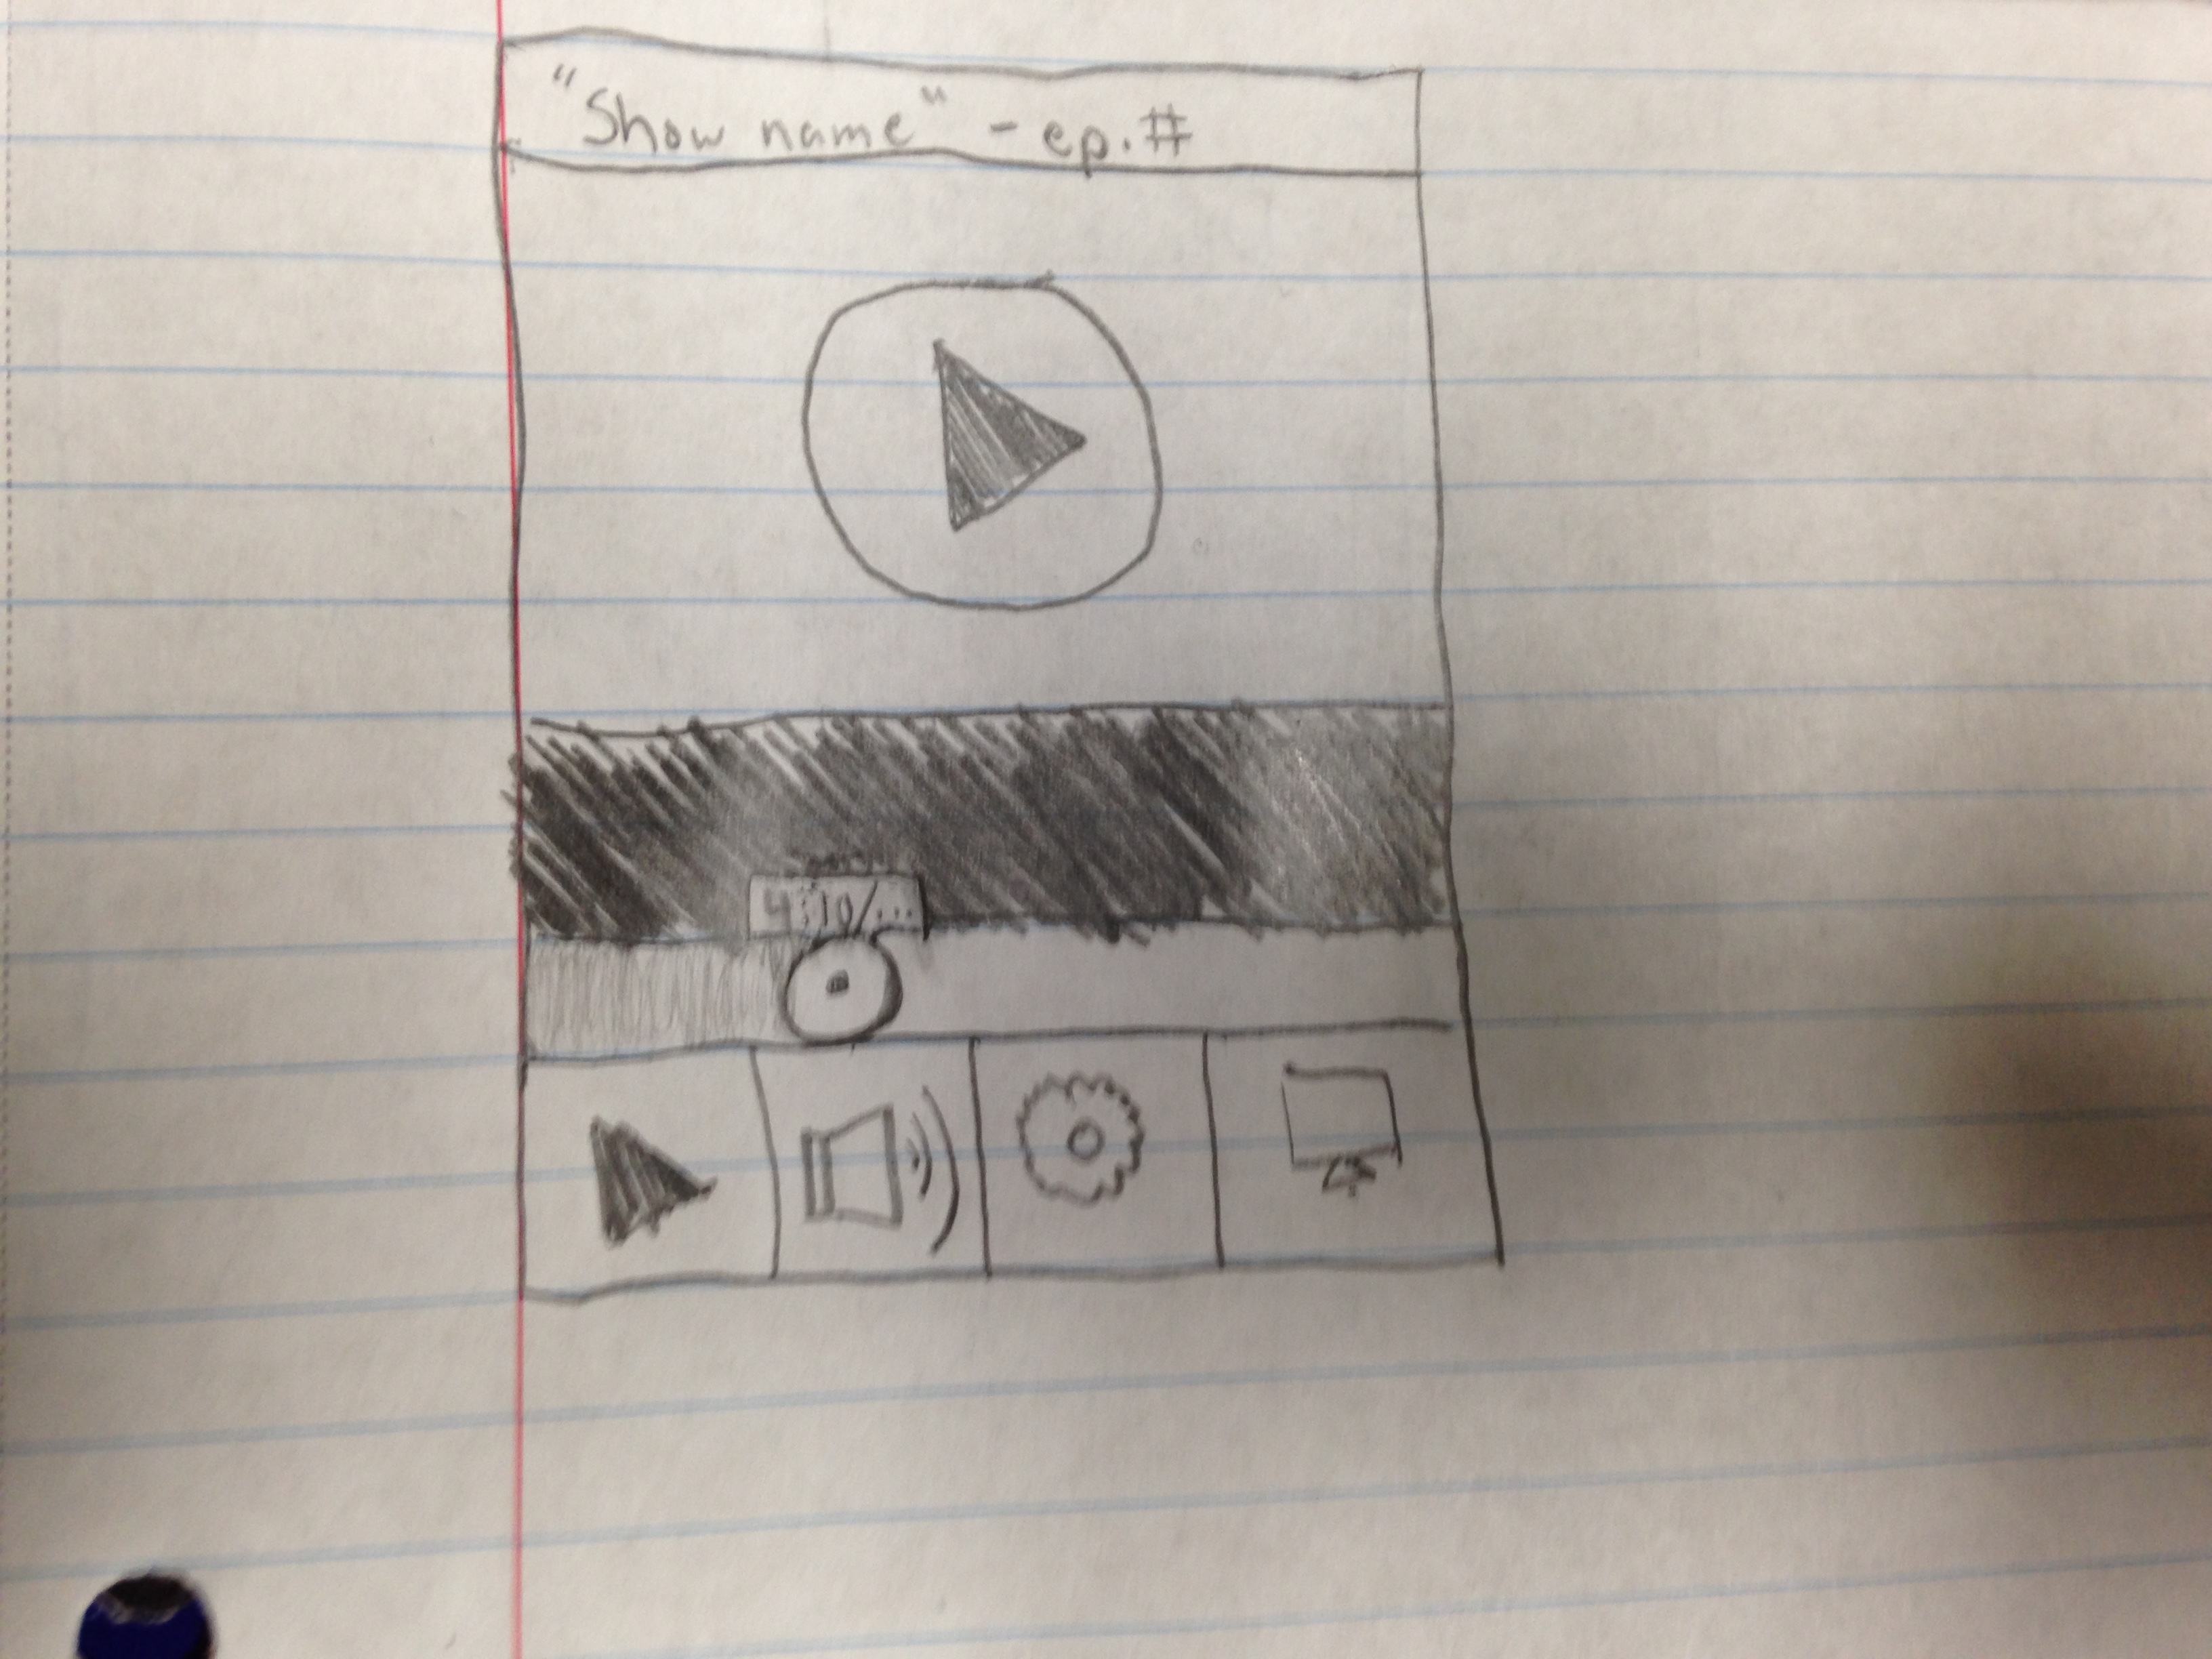 "Show name" - ep.#
4:10/...